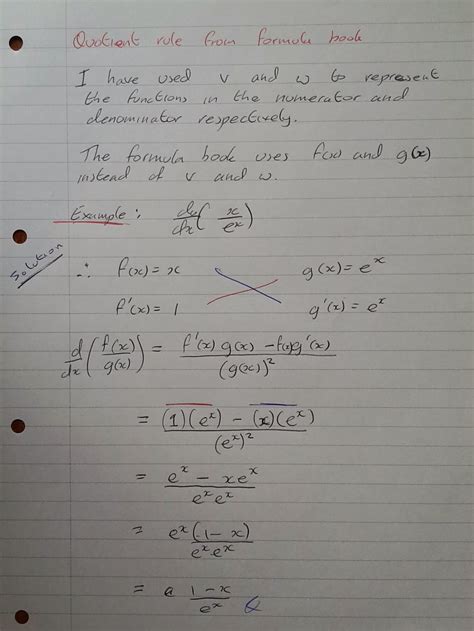 Quotient rule from formula book
I have used v and w to represent
the functions in the numerator and
denominator respectively.
The formula book uses f(x) and g(x)
instead of v and w.
Example: du/dx ( x/e^x )
Solution
∴ f(x) = x g(x) = e^x
f'(x) = 1 g'(x) = e^x
d/dx ( f(x)/g(x) ) = f'(x) g(x) - f(x)g'(x) / (g(x))^2
= (1)(e^x) - (x)(e^x) / (e^x)^2
= e^x - xe^x / e^x e^x
= e^x(1-x) / e^x.e^x
= 1-x / e^x